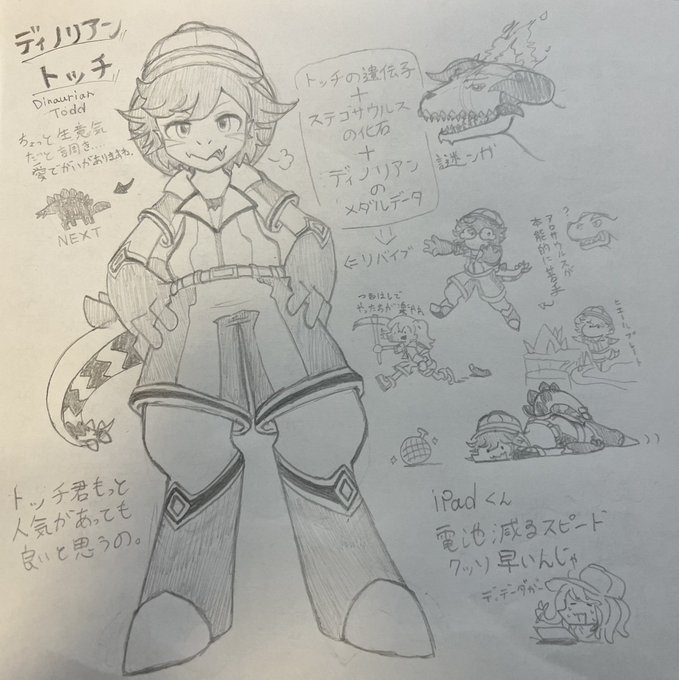 ディノリアン
トッチ
Dinaurian
Todd
ちょっと生意気
だと言間き…
愛でがいがありますね。
NEXT
トッチの遺伝子
+
ステゴサウルス
の化石
+
ディノリアン
の
メダルデータ
⇐リバイブ
謎ンガ
?
アロサウルスが
本能的に苦手
つるはしで
やったらが楽やね
トッチ君もっと
人気があっても
良いと思うの。
iPadくん
電池減るスピード
クッソ早いんじゃ
デ、データがー